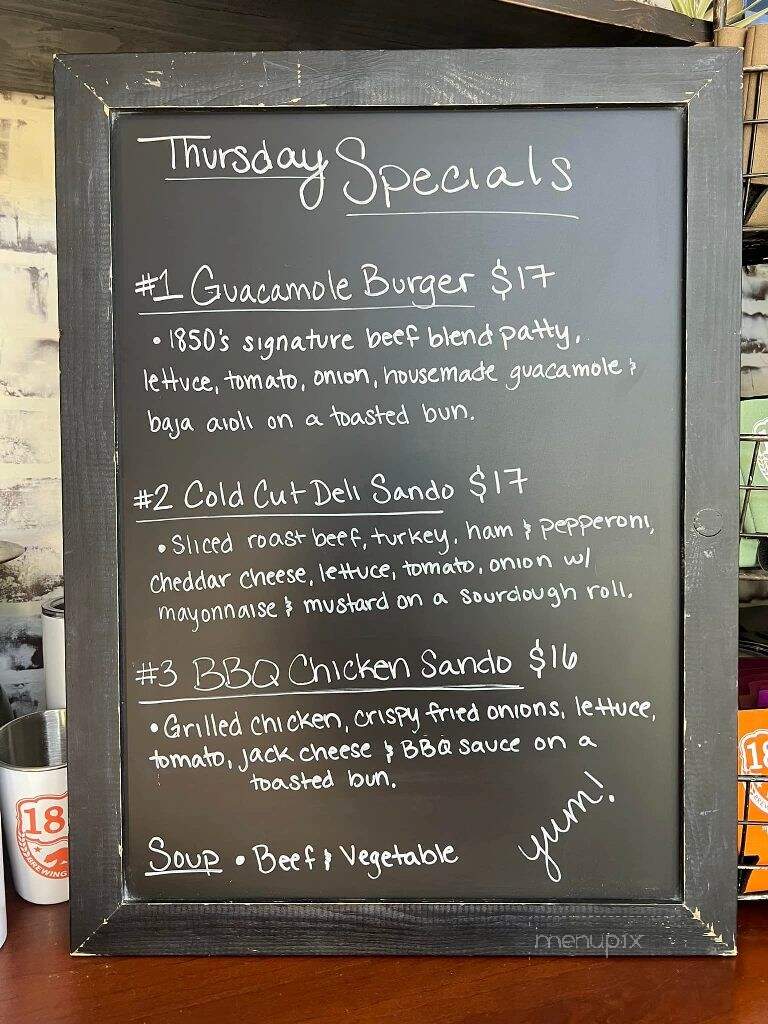 Thursday Specials
#1 Guacamole Burger $17
• 1850's signature beef blend patty,
lettuce, tomato, onion, housemade guacamole &
baja aioli on a toasted bun.
#2 Cold Cut Deli Sando $17
• Sliced roast beef, turkey, ham & pepperoni,
cheddar cheese, lettuce, tomato, onion w/
mayonnaise & mustard on a sourdough roll.
#3 BBQ Chicken Sando $16
• Grilled chicken, crispy fried onions, lettuce,
tomato, jack cheese & BBQ sauce on a
toasted bun.
yum!
Soup • Beef & Vegetable
18
BREWING
18
menupix